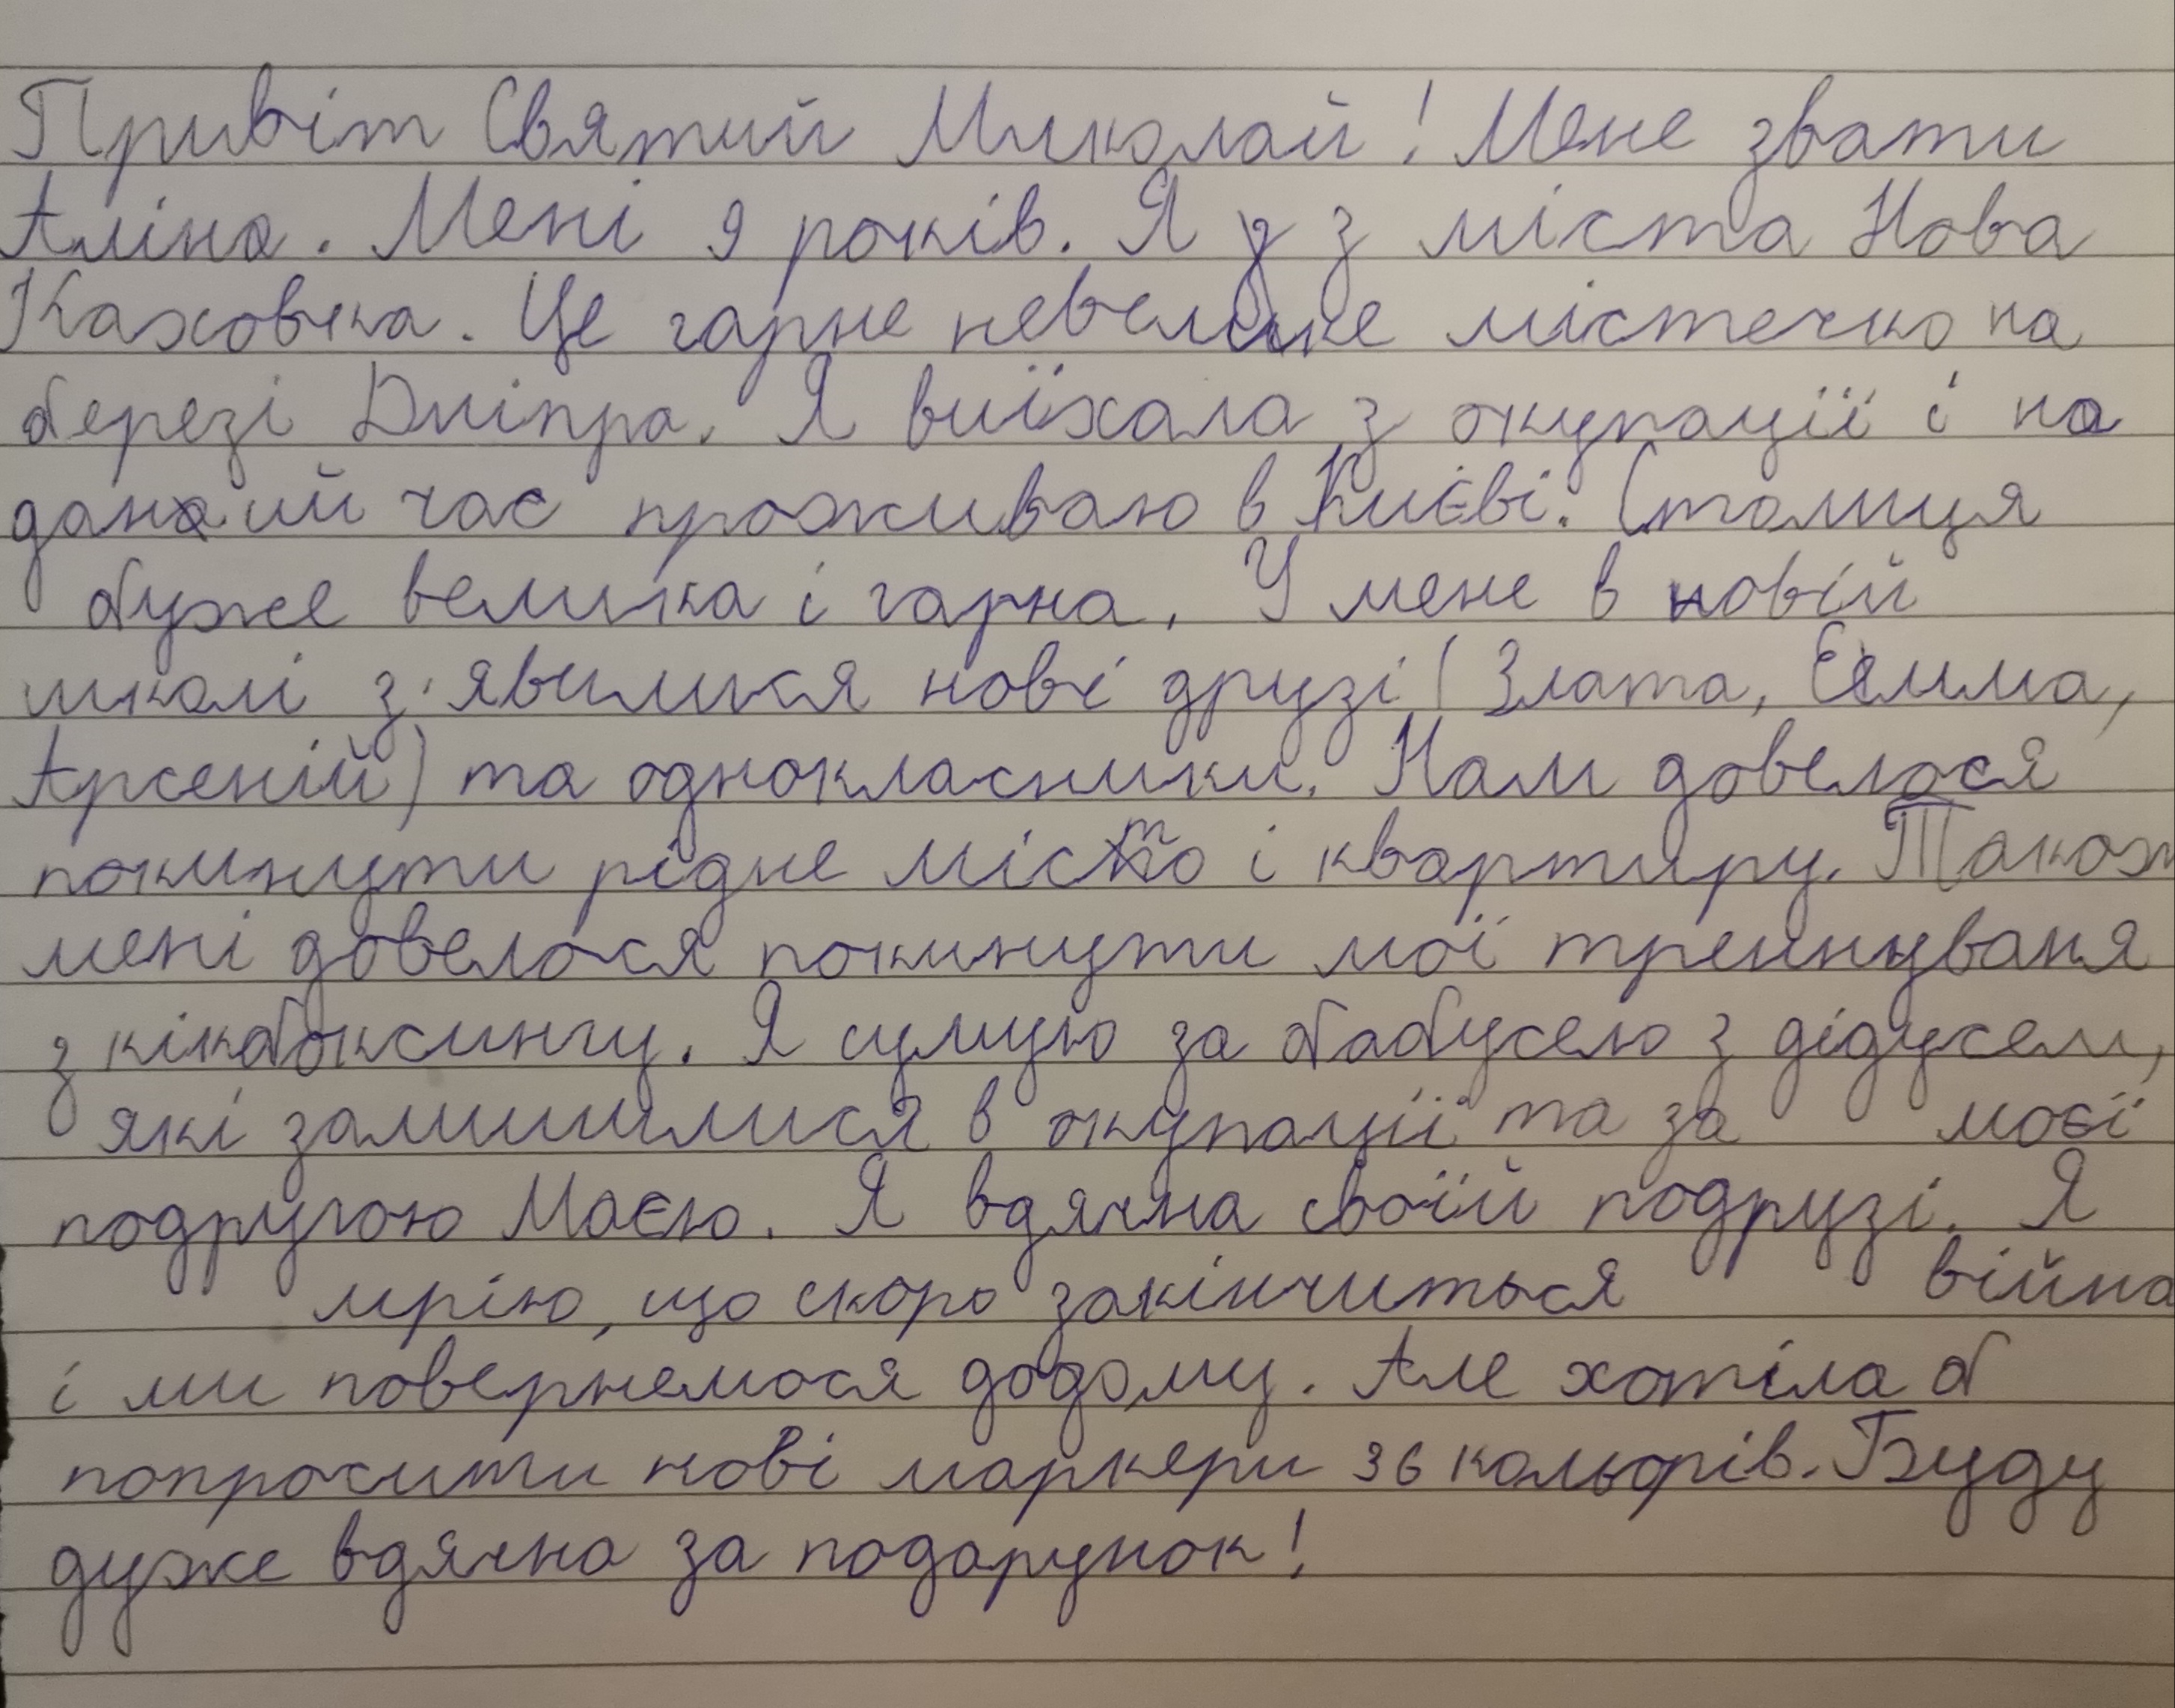 Привіт Святий Миколай! Мене звати
Аліна. Мені 9 років. Я з міста Нова
Каховка. Це гарне невелике містечко на
березі Дніпра. Я виїхала з окупації і на
даний час проживаю в Києві. Столиця
дуже велика і гарна. У мене в новій
школі з'явилися нові друзі (Злата, Емма,
Арсеній) та однокласники. Нам довелося
покинути рідне місто і квартиру. Також
мені довелося покинути мої тренування
з кікбоксингу. Я сумую за бабусею з дідусем,
які залишилися в окупації та за моєї
подругою Маєю. Я вдячна своїй подрузі. Я
мрію, що скоро закінчиться війна
і ми повернемося додому. Але хотіла б
попросити нові маркери 36 кольорів. Буду
дуже вдячна за подарунок!